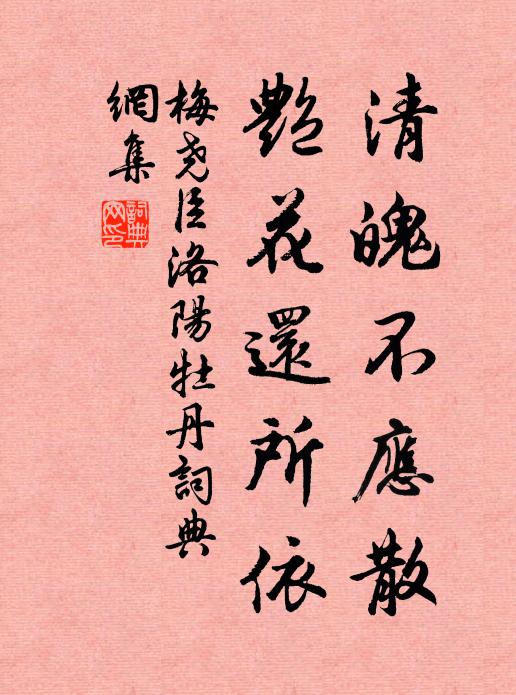 清魄不應散
艷花還所依
梅尧臣洛陽牡丹詞典
網集
詞典
网印